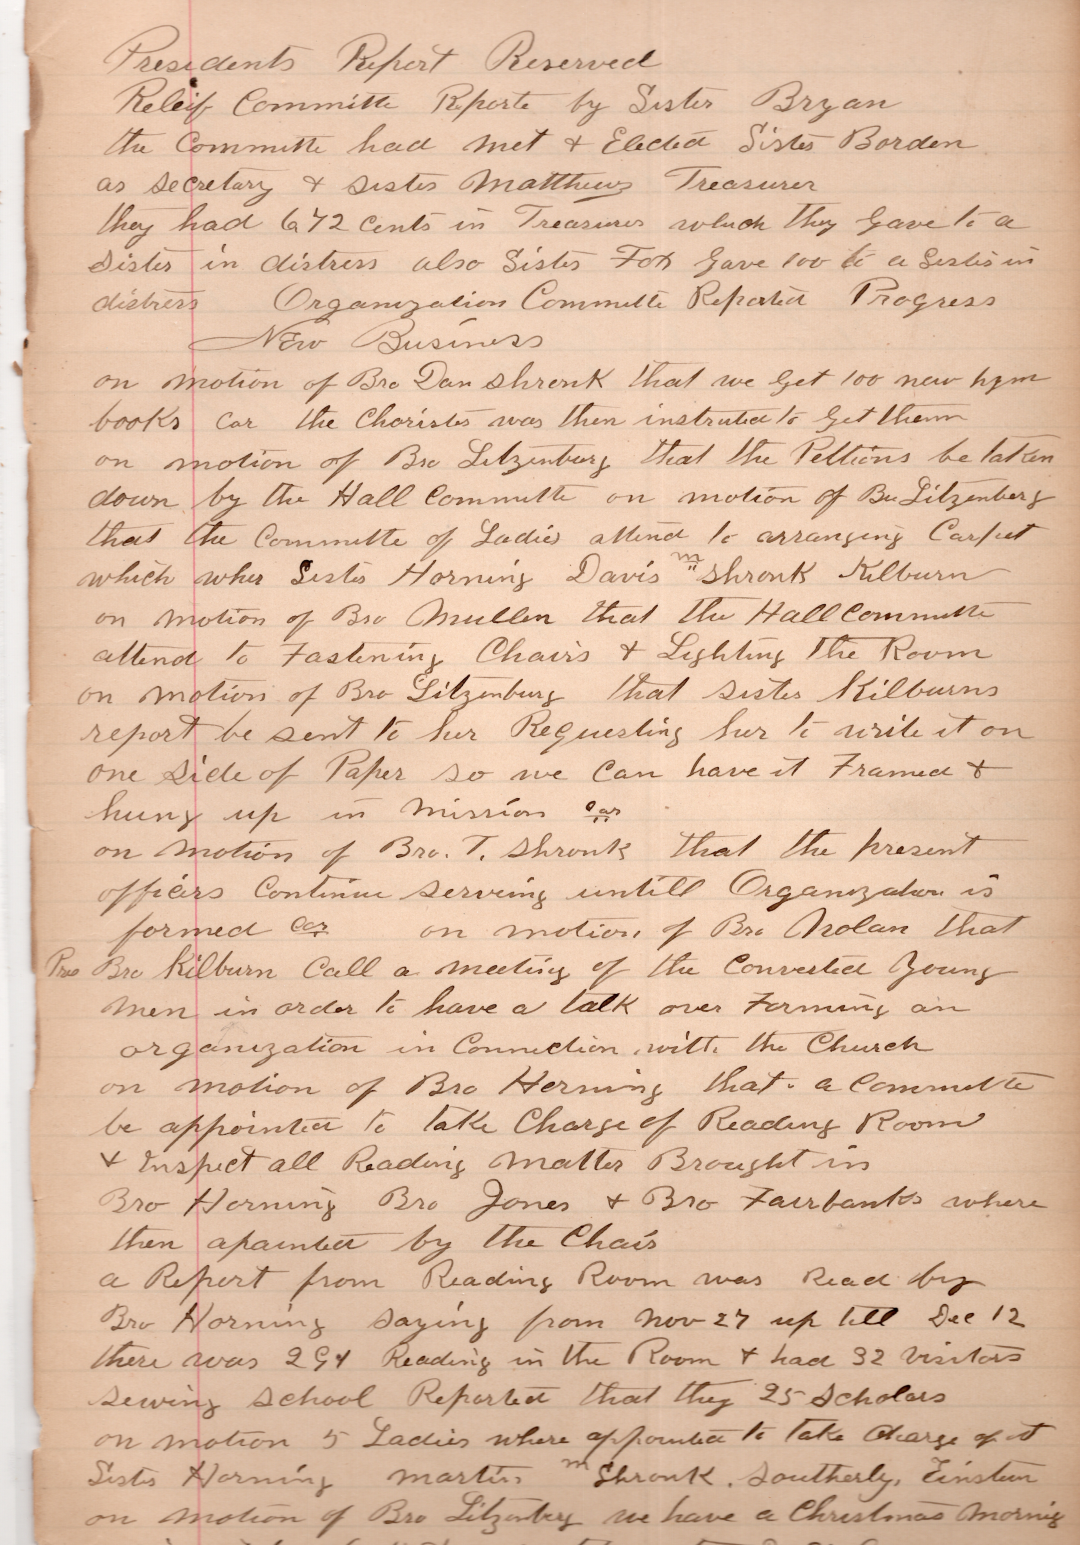 Presidents Report Reserved
Releif Committe Reporte by Sister Bryan
the Committe had met & Elected Sister Borden
as secretary & sister Matthews Treasurer
they had 672 cents in Treasures which they Gave to a
sister in distress also Sister Fox Gave 100 to a Sister in
distress Organization Committe Reported Progress
New Business
on motion of Bro Dan Shronk that we Get 100 new hym
books car the Chorister was then instruted to Get them
on motion of Bro Litzenburg that the Pettions be taken
down by the Hall Committe on motion of Bro Litzenberg
that the Committe of Ladies attend to arranging Carpet
which wher Sister Horning Davis m " Shronk Kilburn
on motion of Bro Mullen that the Hall Committe
attend to Fastening Chairs & Lighting the Room
on motion of Bro Litzenburg that sister Kilburns
report be sent to her Requesting her to write it on
one side of Paper so we can have it Framed &
hung up in mission car
on motion of Bro. T. Shronk that the present
officirs Continue serveing untill Organization is
formed car on motion of Bro Nolan that
Pres Bro Kilburn Call a meeting of the Converted Young
men in order to have a talk over Forming an
organization in Connection with the Church
on motion of Bro Horning that a Committe
be appointed to take Charge of Reading Room
& Inspect all Reading matter Brought in
Bro Horning Bro Jones & Bro Fairbanks where
then apainted by the Chair
a Report from Reading Room was Read by
Bro Horning saying from Nov 27 up till Dec 12
there was 294 Reading in the Room & had 32 visitors
sewing school Reported that they 25 scholars
on motion 5 Ladies where appointed to take charge of it
Sister Horning martin m Shronk. Southerly, Einstein
on motion of Bro Litzenberg we have a Christmas Morning